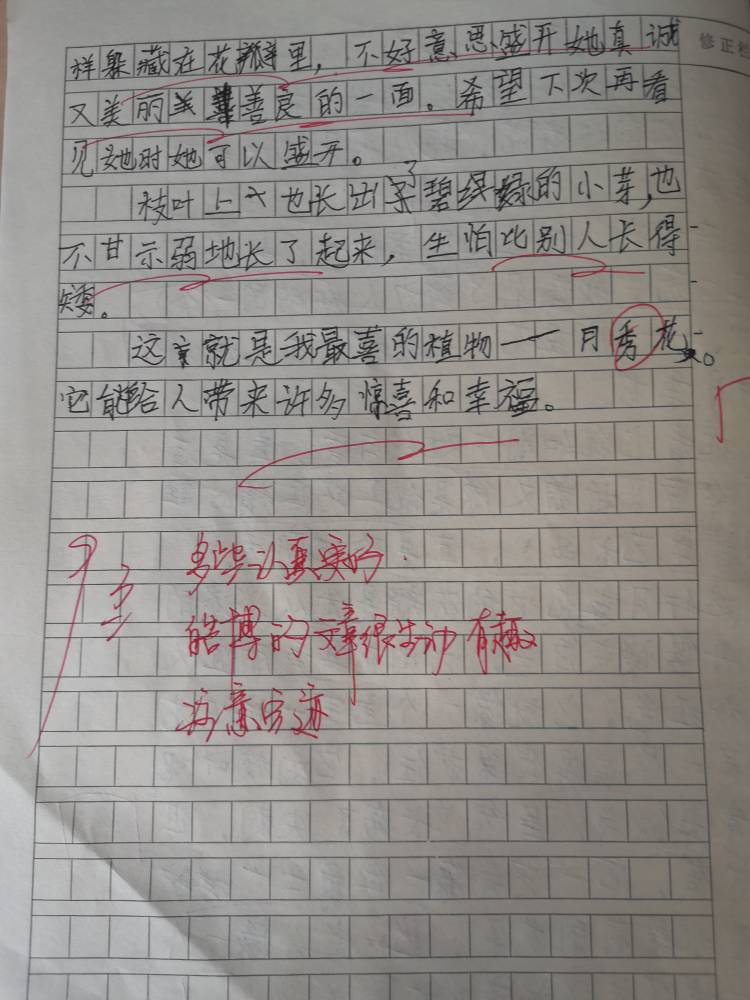 修正栏
样躲藏在花瓣里，不好意思盛开她真诚
又美丽善良的一面。希望下次再看
见她时她可以盛开。
枝叶上也长出了碧绿的小芽，也
不甘示弱地长了起来，生怕比别人长得
矮。
这就是我最喜的植物一月秀花。
它能给人带来许多惊喜和幸福。
皓博的文章很生动有趣
注意字迹